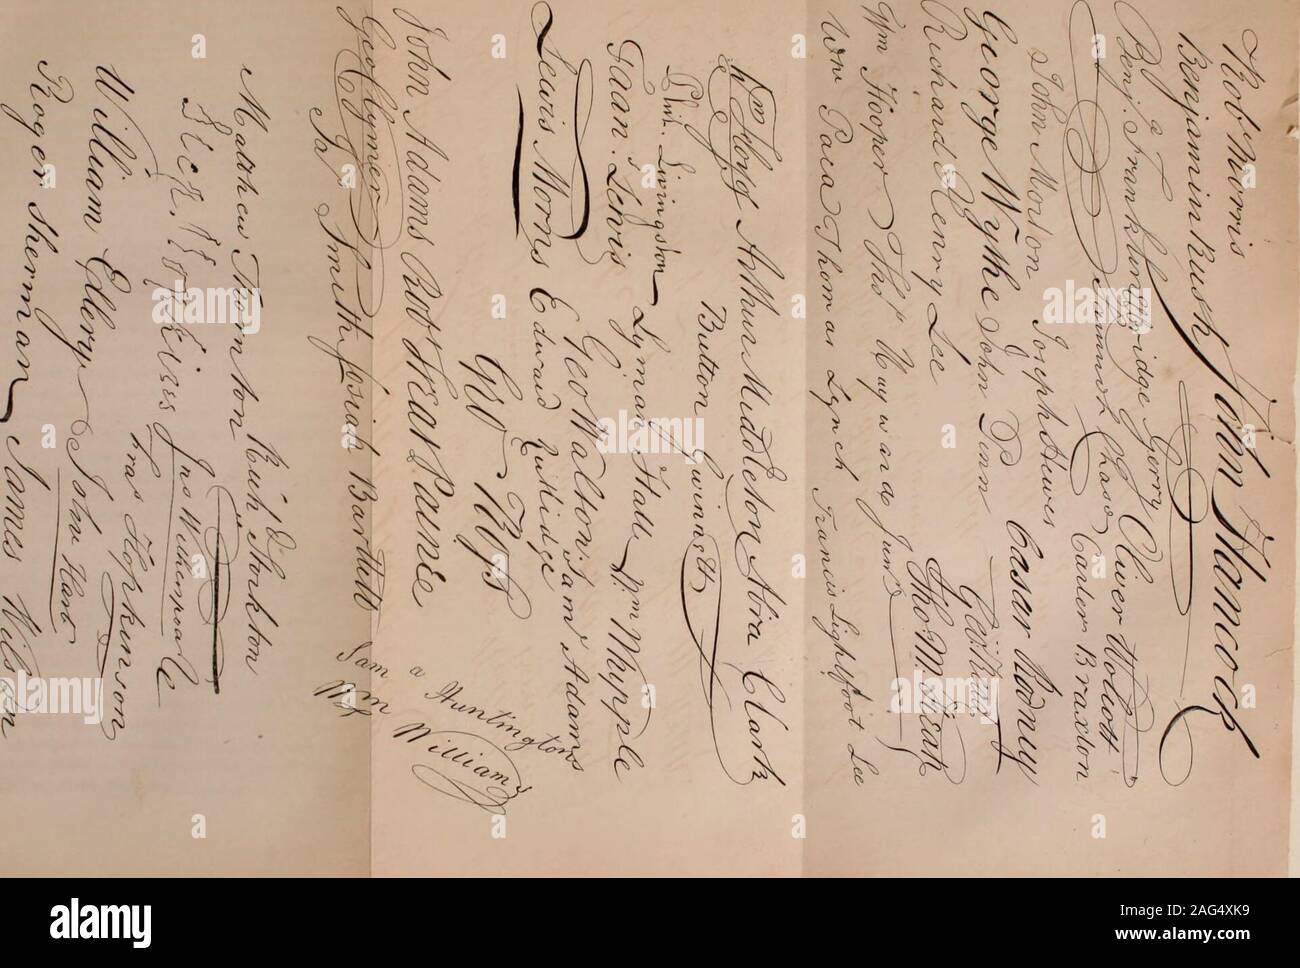 Robt Morris
Benjamin Rush John Hancock
Benj.a Franklin Elbridge Gerry Oliver Wolcott
Samuel Chase Carter Braxton
John Morton Joseph Hewes
George Wythe John Penn Cæsar Rodney
Richard Henry Lee Geo
Wm Hooper Thos Hayward Junr. Tho M:Kean
Wm Paca Thomas Lynch Francis Lightfoot Lee
Wm Floyd Arthur Middleton Abra Clark
Button Gwinnett
Phil. Livingston Lyman Hall Wm Whipple
Fran. Lewis Geo Walton. Sam.l Adams
Lewis Morris Edward Rutledge
Go Ross
John Adams Robt Treat Paine
Sam.a Huntington
Geo Clymer Wm Williams
Ja. Smith Josiah Bartlett
Matthew Thornton Rich.d Stockton
Jno Witherspoon
William Ellery Fras Hopkinson
John Hart
Roger Sherman James Wilson
a
alamy
alamy
Image ID: 2AG4XK9
www.alamy.com